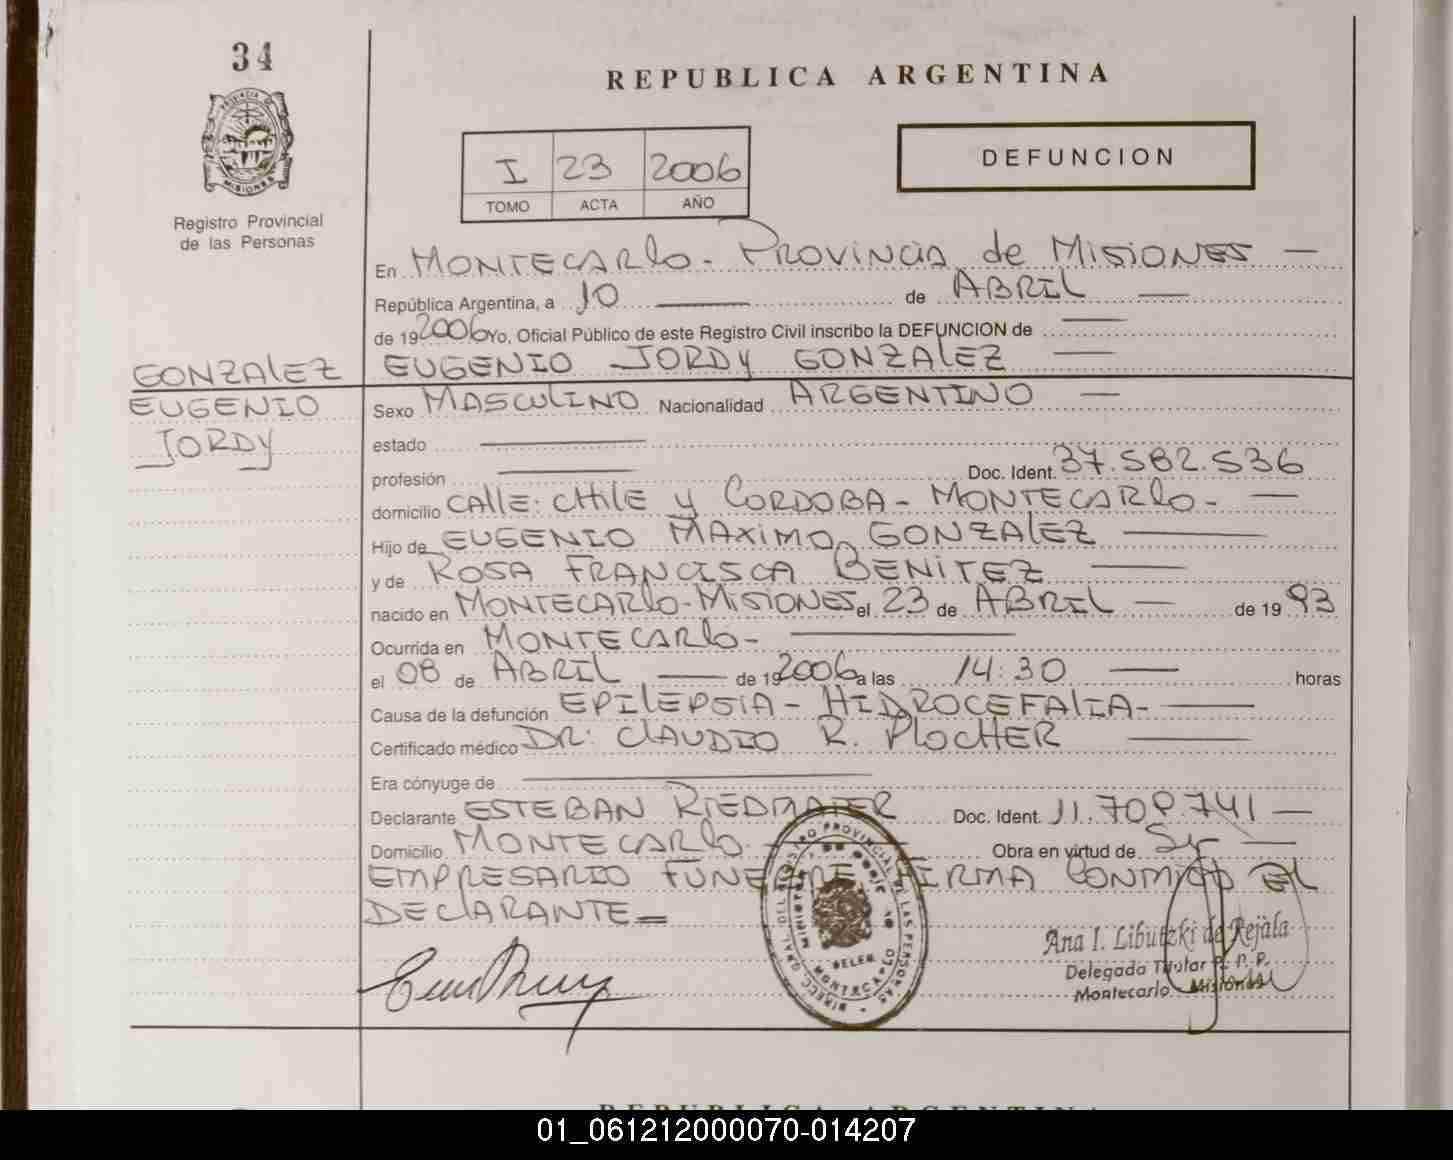 34
REPUBLICA ARGENTINA
PROVINCIA DE
MISIONES
I 23 2006
TOMO ACTA AÑO
DEFUNCION
Registro Provincial
de las Personas
En MONTECARLO - PROVINCIA de MISIONES —
República Argentina, a 10 — de ABRIL —
de 192006 Yo, Oficial Público de este Registro Civil inscribo la DEFUNCION de —
GONZALEZ EUGENIO JORDY GONZALEZ —
EUGENIO Sexo MASCULINO Nacionalidad ARGENTINO —
JORDY estado —
profesión — Doc. Ident. 37.582.536
domicilio CALLE: CHILE y CORDOBA - MONTECARLO - —
Hijo de EUGENIO MAXIMO GONZALEZ —
y de ROSA FRANCISCA BENITEZ —
nacido en MONTECARLO - MISIONES el 23 de ABRIL — de 1993
Ocurrida en MONTECARLO - —
el 08 de ABRIL — de 192006 a las 14:30 — horas
Causa de la defunción EPILEPSIA - HIDROCEFALIA - —
Certificado médico DR: CLAUDIO R. PLOCHER —
Era cónyuge de —
Declarante ESTEBAN RIEDMAIER Doc. Ident. 11.709.741 —
Domicilio MONTECARLO - Obra en virtud de Ser —
EMPRESARIO FUNEBRE FIRMA CONMIGO EL
DECLARANTE =
Ana I. Libutzki de Rejala
Delegada Titular R. P. P.
Montecarlo Misiones
REPUBLICA ARGENTINA
01_061212000070-014207